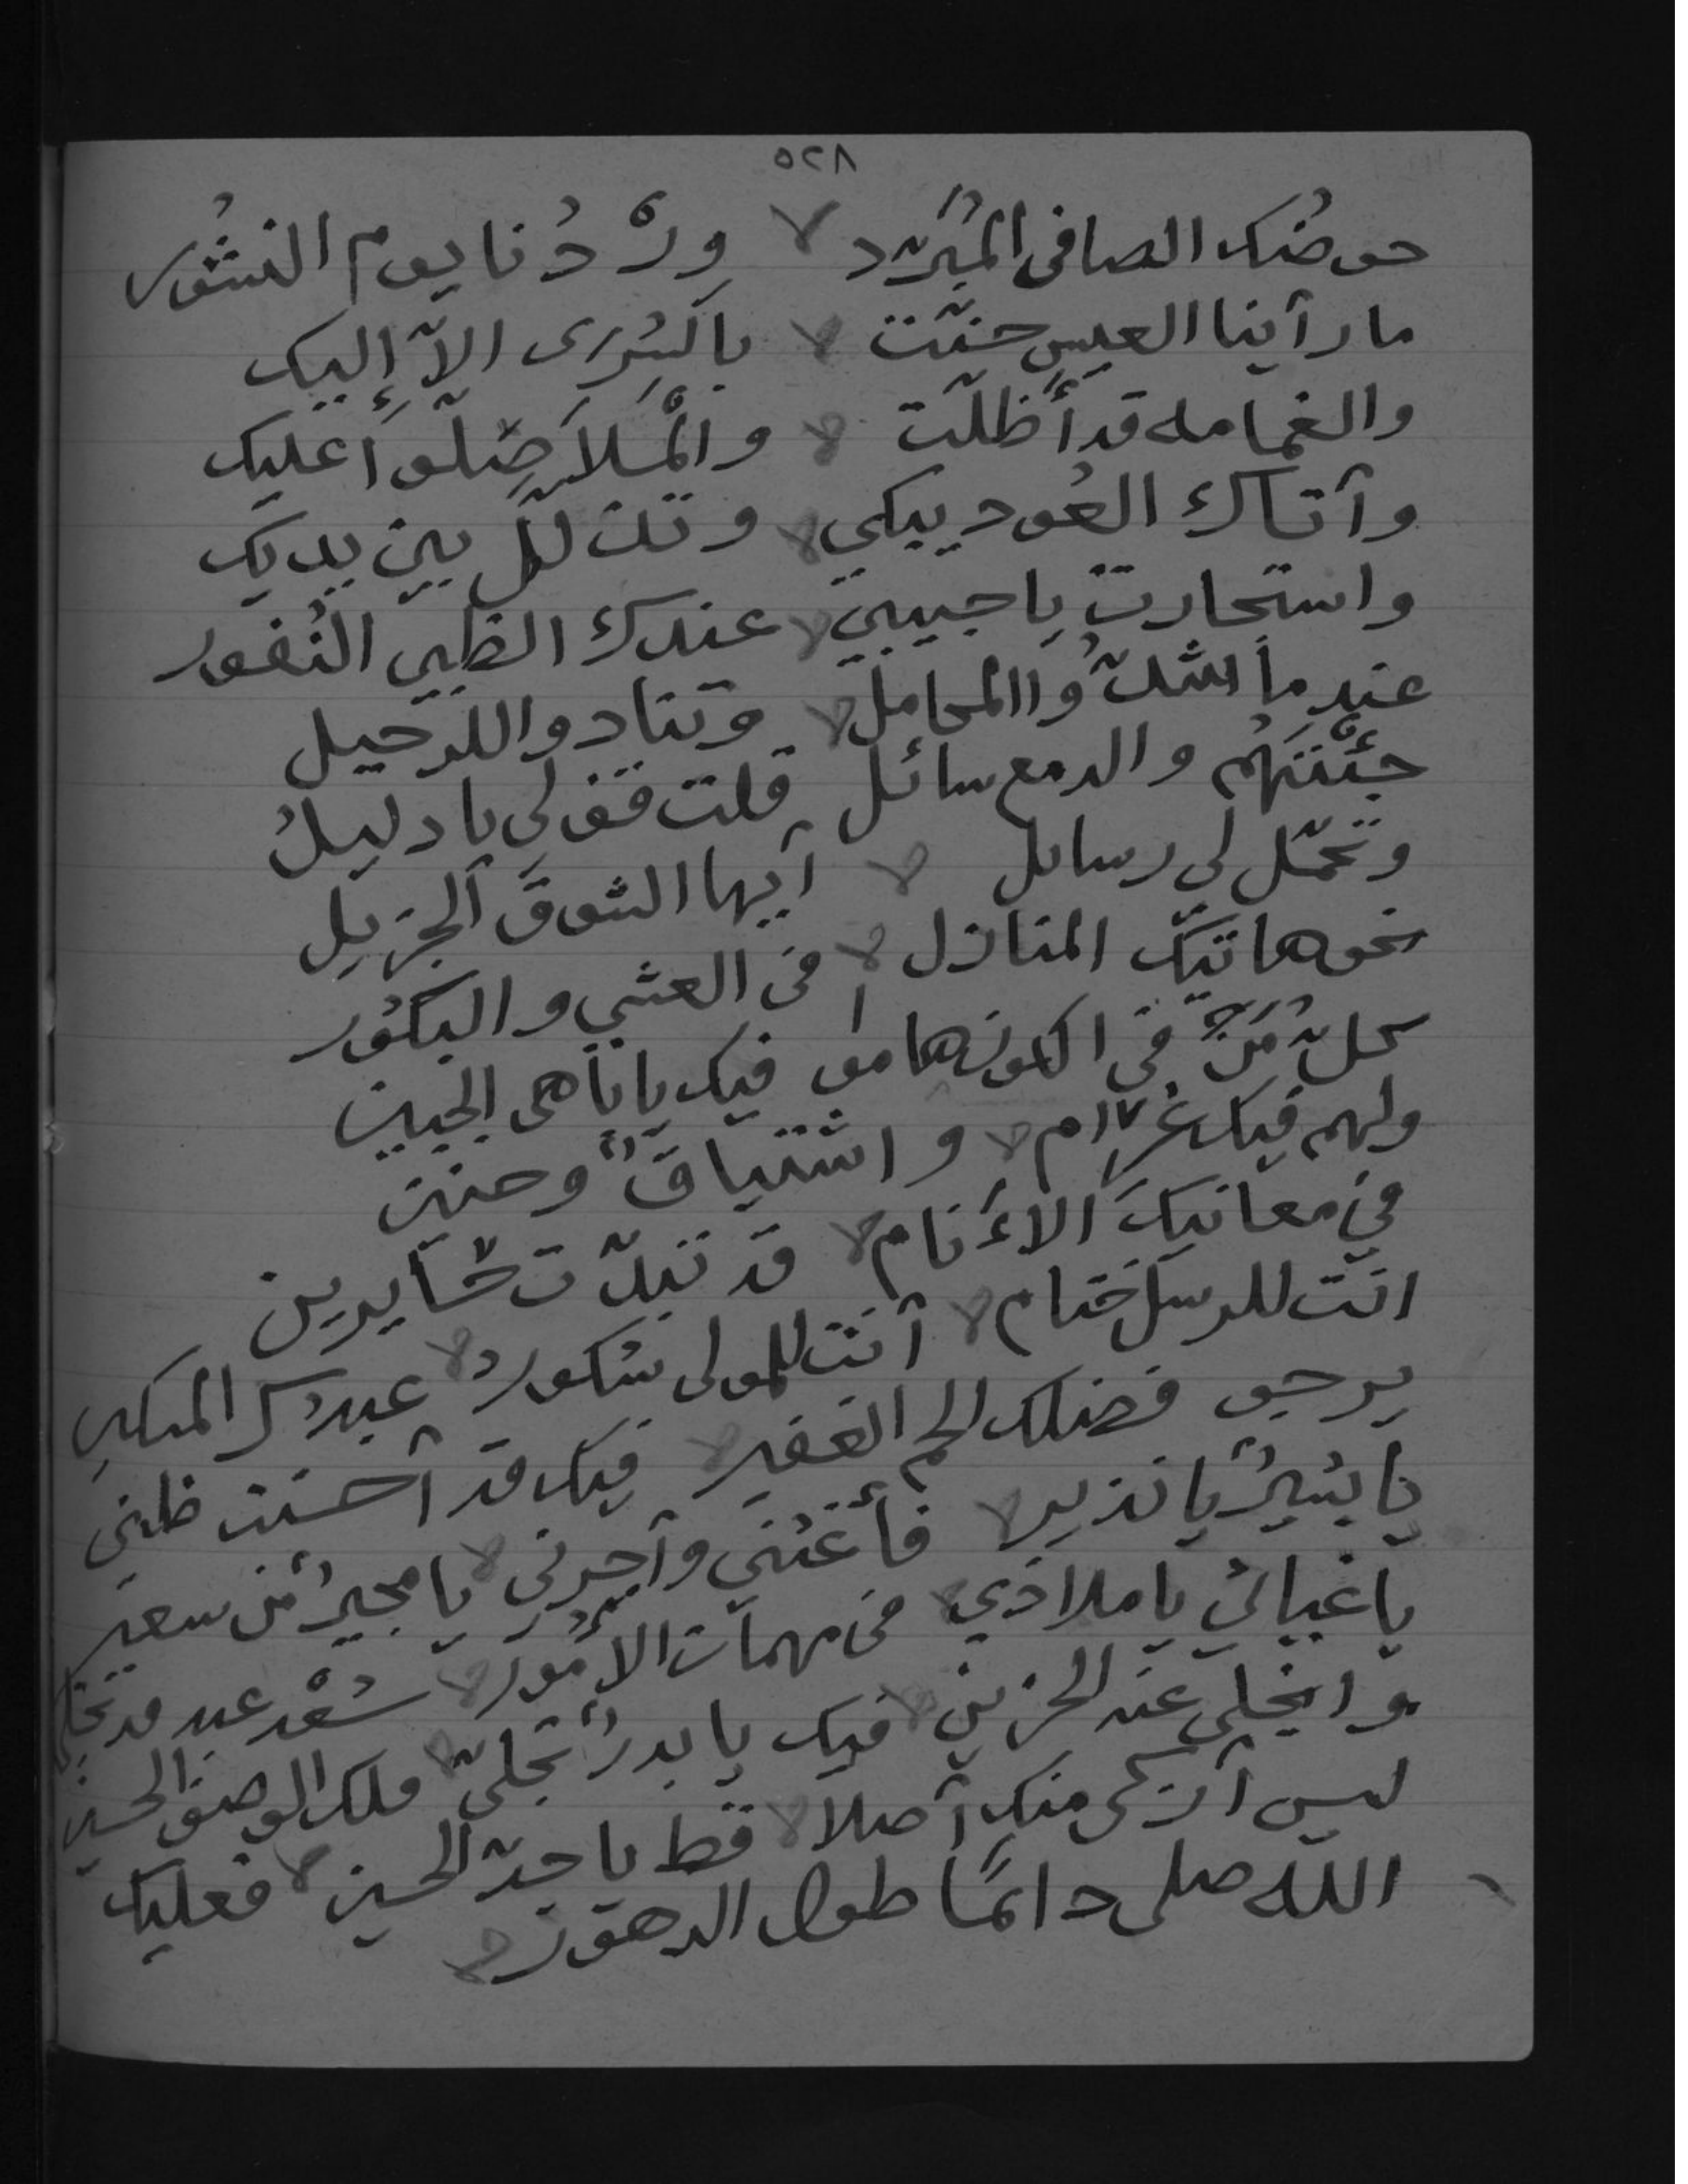 ٥٢٨
حوضُك الصافى المُبَرّد وِرْدُنا يوم النشُور
ما رآينا العيس حنّت بالسُرى الاّ إليك
والغمامه قد أَظلّت والْمَلاَ صَلّوا عليك
وآتاك العُود يبكي وتذلل بين يديك
واستجارت يا حبيبي عندك الظبي النُفور
عندما شدّوا المحامل وتنادوا للرحيل
جئْتهُم والدمع سائل قلت قف لى يا دليلُ
وتحمّل لي رسايل آيها الشوقَ الجزيل
نحو هاتيك المنازل فى العشي والبكُور
كلّ مَنْ فى الكون هامو فيك يا باهى الجبين
ولهم فيك غرام واشتياقٌ وحنين
في معانيكَ الاءَنام قد تبدّت حَايرين
انت للرسل ختام آنت للمولى شكورُ عبدك المسكين
يرجو فضلك الجم الغفير فيك قد آحسنت ظنى
يا بشيرُ يا نذير فأغثني وآجرنى يا مجيرُ من سعير
يا غياثي يا ملاذي فى مهمات الاُمُور سَعْد عبد قد تجلى
وانجلى عنه الحزين فيك يا بدرُ تجلىّ ملك الوصف الحسين
ليس آزكى منك آصلا قط يا جدّ الحسين فعليك
الله صلى دائمًا طول الدهور